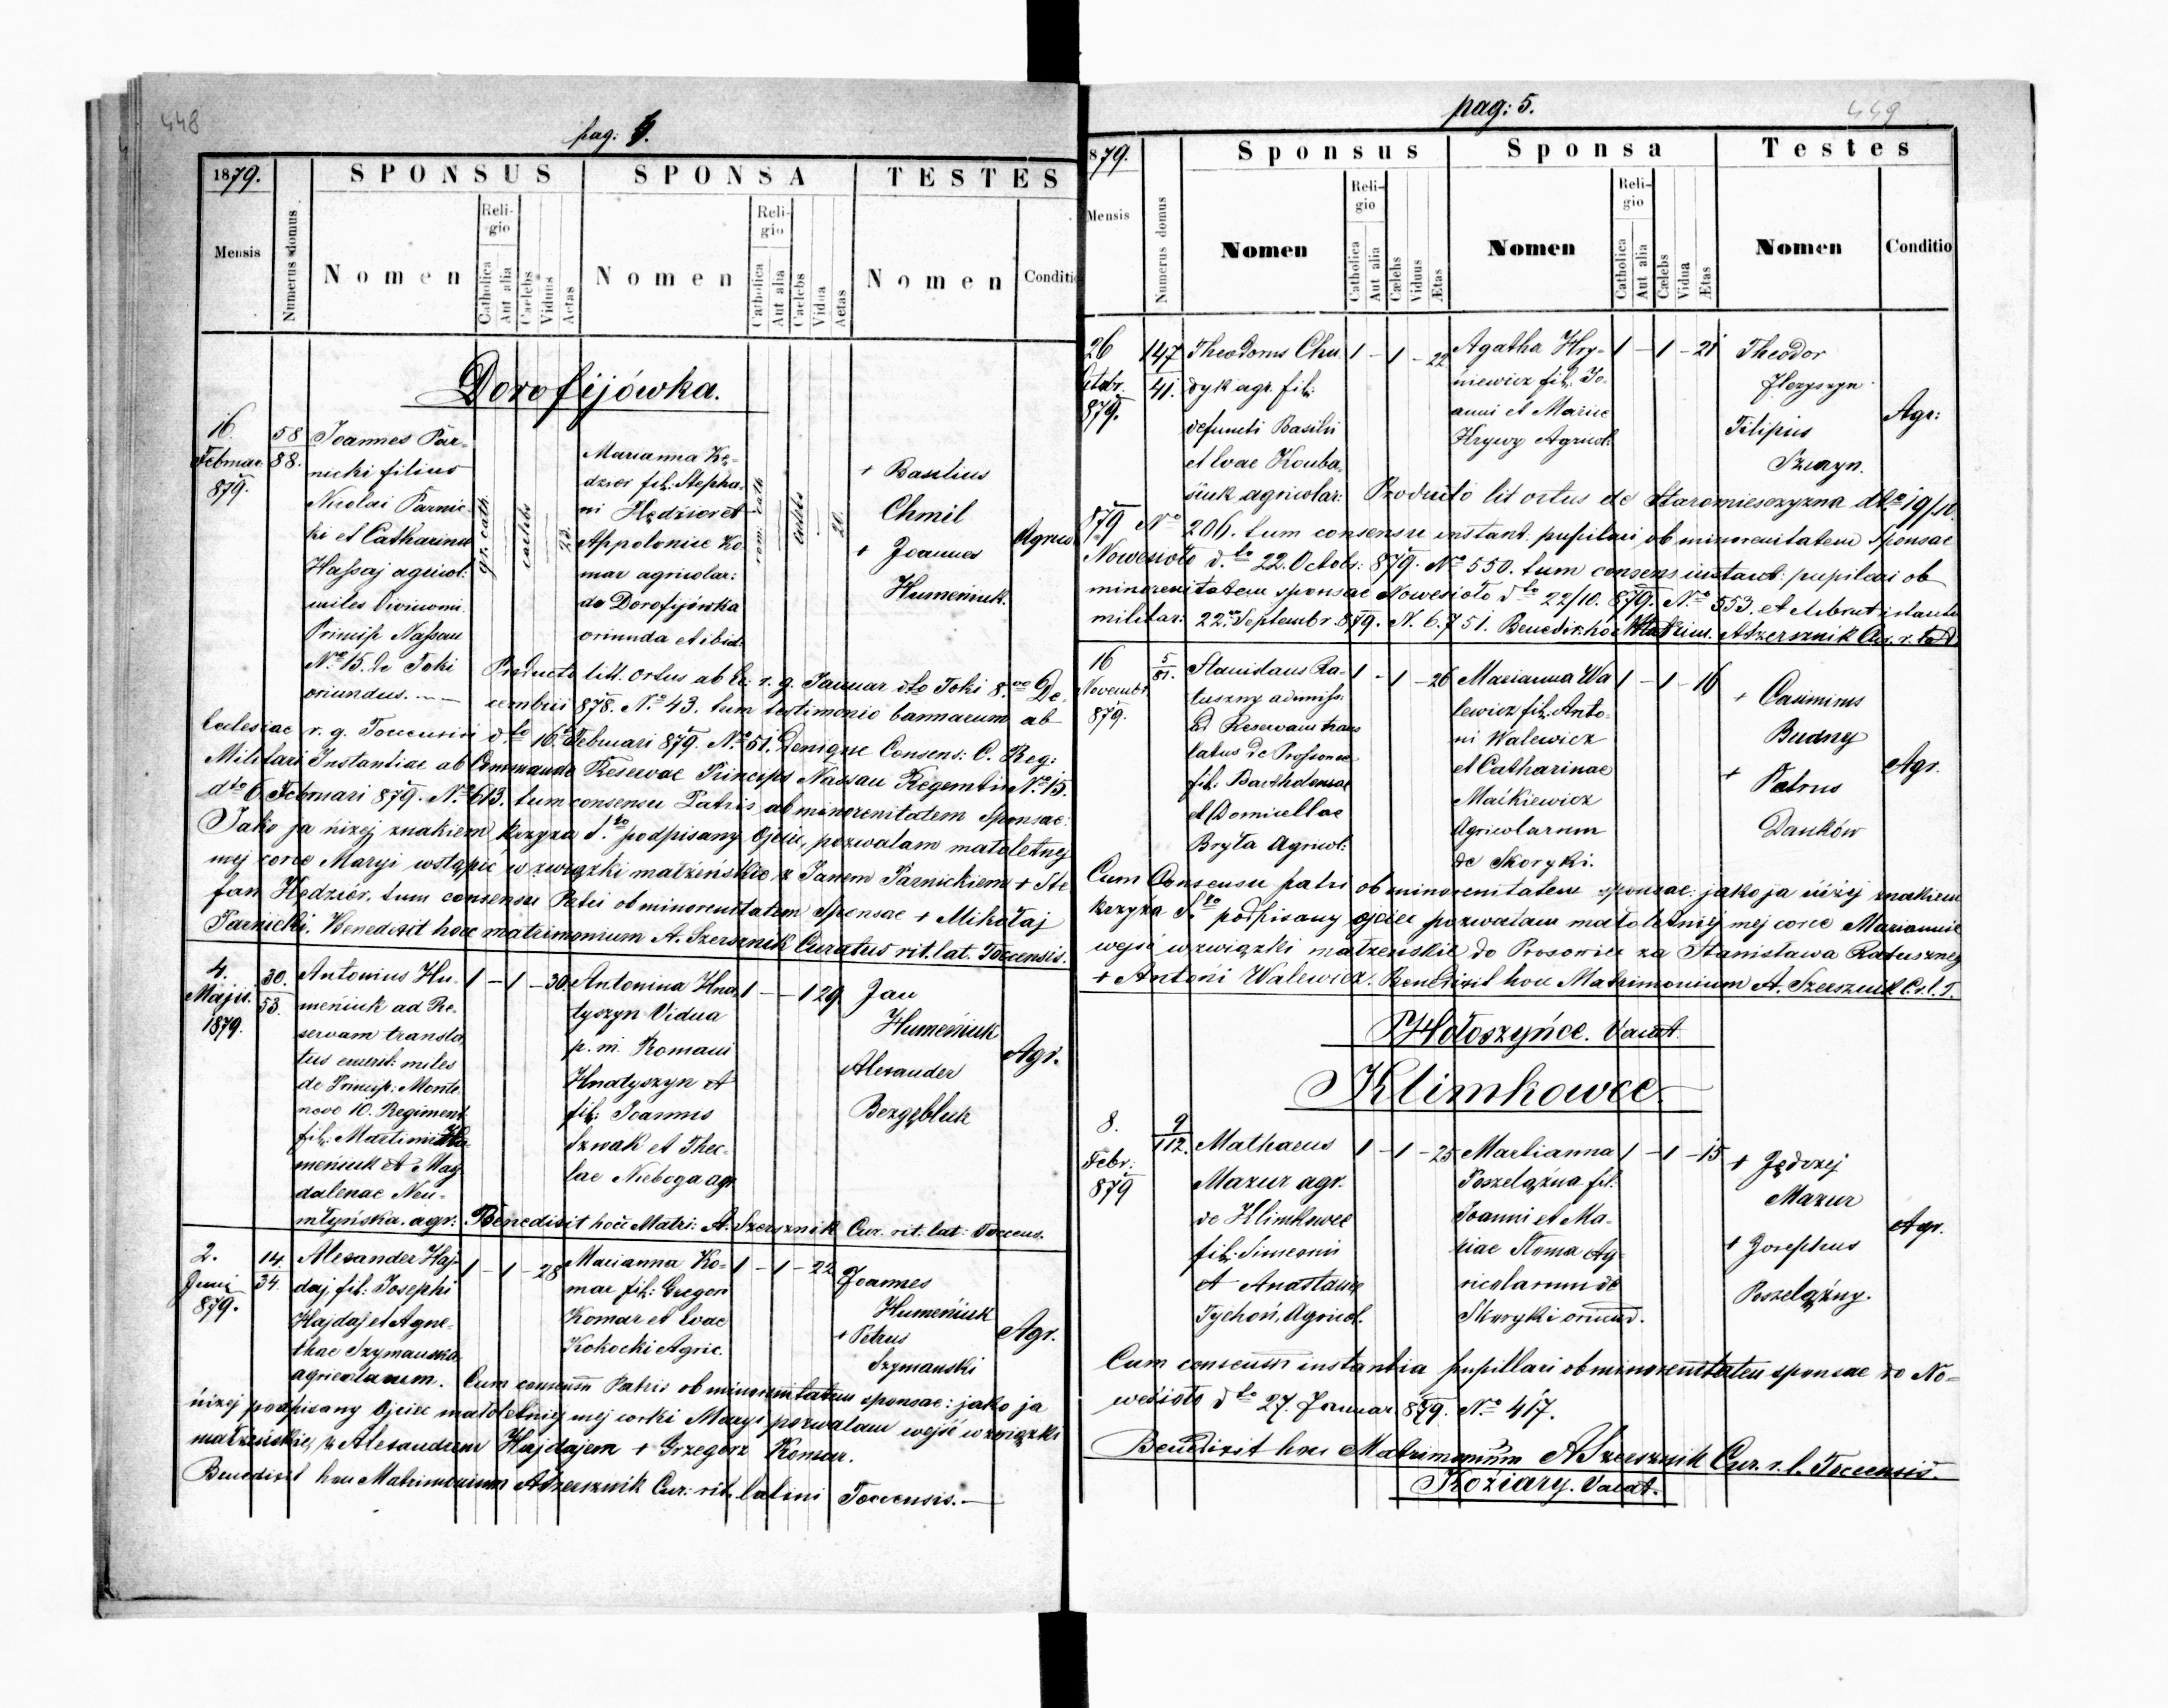 448
pag: 4.
1879.
SPONSUS
SPONSA
TESTES
Mensis
Numerus domus
Nomen
Religio
Catholica
Aut alia
Caelebs
Viduus
Aetas
Nomen
Religio
Catholica
Aut alia
Caelebs
Vidua
Aetas
Nomen
Conditio
Dorofijówka.
16.
Februar.
879.
58
88.
Joannes Par-
nicki filius
Nicolai Parnic-
ki et Catharina
Hassaj agricol:
miles
Princip Nassau
No 15. de Toki
oriundus.
gr. cath.
caelebs
23.
Marianna Hę-
dzior fil: Stepha-
ni Hędzior et
Appolonise Ko-
mar agricolar:
de Dorofijówka
oriunda et ibid.
rom: cath
caelebs
20.
+ Basilius
Chmil
+ Joannes
Humeniuk.
Agrico
Producto litt. ortus ab Ec: r. g. Januar dto Toki 8.vo De-
cembrii 878. No 43. tum testimonio bannarum ab
Eclesiae r. g. Toccensis dto 16 Februari 879. No 51. Denique Consens: C. Reg:
Militari Instantiae ab Commando Reservae Princips Nassau Regemtis No 15.
dto 6. Februari 879. No 613. tum consensu Patris ob minorenitatem Sponsae:
Jako ja niżej znakiem krzyża S.to podpisany Ojciec, pozwalam małoletnej
mej corce Maryi wstąpić w związki małżeńskie z Janem Parnickiem + Ste
fan Hędziór, tum consensu Patri ob minorenitatem Sponsae + Mihołaj
Parnicki. Benedixit hocce matrimonium A. Szersznik Curatus rit. lat. Toccensis.
4.
Majis.
1879.
30.
53.
Antonius Hu-
meniuk ad Re-
servam transla
tus miles
de Princip: Monte
novo 10. Regiment
fil: Martini Hu-
meniuk et Mag
dalenae Neu-
młyńska. agr:
1 – 1 – 30
Antonina Hna
tyszyn Vidua
p. m. Romani
Hnatyszyn et
fil: Joannis
Szwak et Thec-
lae Nieboga agr.
1 – – 1 29
Jan
Humeniuk
Alexander
Bezygbluk
Agr.
Benedixit hocce Matri: A. Szersznik Cur. rit. lat: Toccens.
2.
Juni
879.
14.
34.
Alexander Haj-
daj, fil: Josephi
Hajdaj et Agne-
thae Szymanska
agricolarum.
1 – 1 – 28
Marianna Ko-
mar fil: Gregori
Komar et Evae
Kokocki Agric.
1 – 1 – 22
Joannes
Humeniuk
+ Petrus
Szymanski
Agr.
Cum consensu Patris ob minorenitatem sponsae: jako ja
niżej podpisany Ojciec małoletniej mej corki Maryi pozwalam wejść w związki
małżeńskie, z Alexandrem Hajdajem + Grzegorz Komar.
Benedixit hocce Matrimonium A Szersznik Cur: rit. latini Toccensis.—
pag: 5.
449
879.
Sponsus
Sponsa
Testes
Mensis
Numerus domus
Nomen
Religio
Catholica
Aut alia
Cælebs
Viduus
Ætas
Nomen
Religio
Catholica
Aut alia
Cælebs
Vidua
Ætas
Nomen
Conditio
26
Octobr.
879.
147
41.
Theodorus Chu
dyk agr. fil:
defuncti Basilii
et Evae Kouba-
siuk agricolar:
1 – 1 – 22
Agatha Hry-
niewicz fil: Jo-
anni et Mariae
Krywy Agricol.
1 – 1 – 21
Theodor
Filipius
Szwayn.
Agr:
Producto lit ortus de Staromiesczyzna dto 19/10.
879 No 206. tum consensu instant: pupilari ob minorenitatem Sponsae
Nowesioło d.to 22. Octob: 879. No 550. tum consens instant: pupilari ob
minorenitatem sponsae Nowesioło dto 22/10. 879. No 553. et
militar: 22. Septembr. 879. N. 6.751. Benedix: hoc Matrim. A Szersznik Cur. r. l.
16
Novembr.
879.
5
81.
Stanislaus Ra-
tuszny
ad Reservam trans
latus de Prosowce
fil: Bartholomeae
et Domicellae
Bryła Agricol:
1 – 1 – 26
Marianna Wa
lewicz fil: Anto-
ni Walewicz
et Catharinae
Maćkiewicz
Agricolarum
de Skoryki.
1 – 1 – 16
+ Casimirus
Budny
+ Petrus
Danków
Agr.
Cum Consensu patri ob minorenitatem sponsae: jako ja niżej znakiem
krzyża S.to podpisany ojciec pozwalam małoletniej mej corce Mariannie
wejść w związki małzenskie do Prosowiec za Stanisława Ratusznej
+ Antoni Walewicz. Benedixit hocc Matrimonium A. Szersznik C. r. l. T.
Hołoszyńce. Vacat.
Klimkowce.
8.
Febr:
879
9
112.
Mathaeus
Mazur agr.
de Klimkowce
fil: Simeonis
et Anastasiae
Tychoń, Agricol.
1 – 1 – 25
Martianna
Poszelązna fil:
Joanni et Ma-
riae Słoma Ag-
ricolarum de
Skoryki oriund.
1 – 1 – 15
+ Jędrzej
Mazur
+ Josephus
Poszelązny.
Agr.
Cum consensu instantia pupillari ob minorenitatem sponsae do No-
wesioło dto 27. Januar. 879. No 417.
Benedixit hocc Matrimonium A Szersznik Cur. r. l. Toccensis.
Koziary. Vacat.